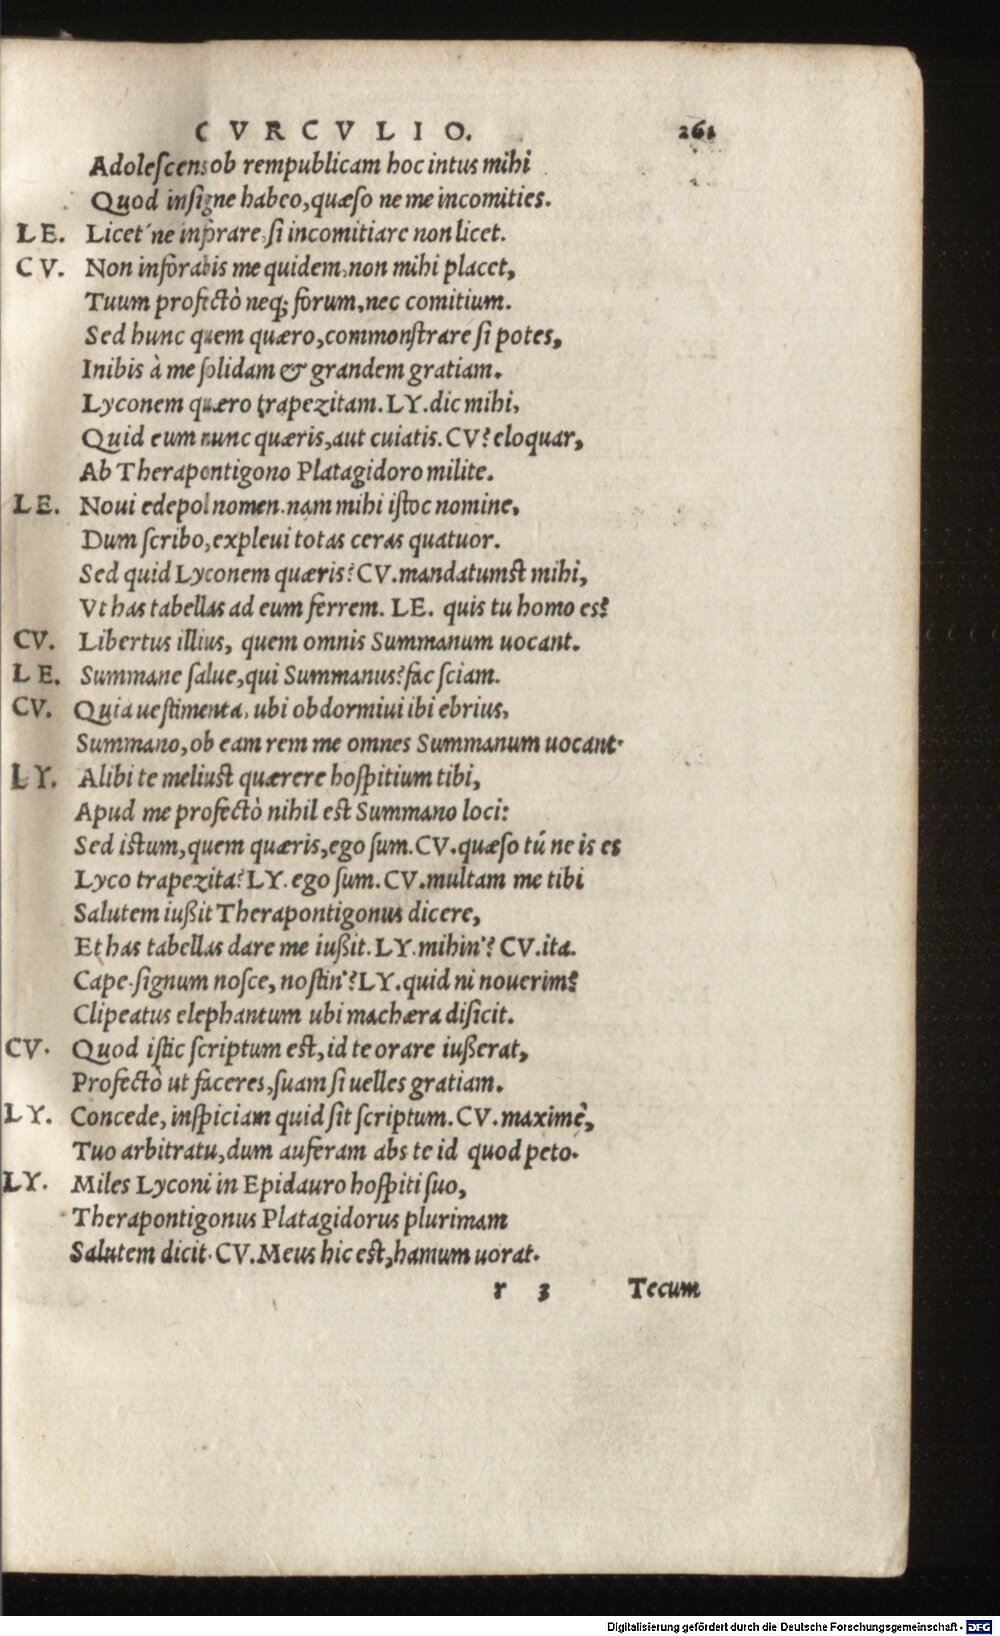 CVRCVLIO. 261
Adolescens ob rempublicam hoc intus mihi
Quod insigne habeo, quæso ne me incomities.
LE. Licet´ne inforare, si incomitiare non licet.
CV. Non inforabis me quidem, non mihi placet,
Tuum profectò neq; forum, nec comitium.
Sed hunc quem quæro, commonstrare si potes,
Inibis à me solidam & grandem gratiam.
Lyconem quæro trapezitam. LY. dic mihi,
Quid eum nunc quæris, aut cuiatis. CV? eloquar,
Ab Therapontigono Platagidoro milite.
LE. Noui edepol nomen. nam mihi istoc nomine,
Dum scribo, expleui totas ceras quatuor.
Sed quid Lyconem quæris? CV. mandatumst mihi,
Vt has tabellas ad eum ferrem. LE. quis tu homo es?
CV. Libertus illius, quem omnis Summanum uocant.
LE. Summane salue, qui Summanus? fac sciam.
CV. Quia uestimenta, ubi obdormiui ibi ebrius,
Summano, ob eam rem me omnes Summanum uocant.
LY. Alibi te meliust quærere hospitium tibi,
Apud me profectò nihil est Summano loci:
Sed istum, quem quæris, ego sum. CV. quæso tú ne is es
Lyco trapezita? LY. ego sum. CV. multam me tibi
Salutem iußit Therapontigonus dicere,
Et has tabellas dare me iußit. LY. mihin'? CV. ita.
Cape. signum nosce, nostin'? LY. quid ni nouerim?
Clipeatus elephantum ubi machæra disicit.
CV. Quod istic scriptum est, id te orare iußerat,
Profectò ut faceres, suam si uelles gratiam.
LY. Concede, inspiciam quid sit scriptum. CV. maximè,
Tuo arbitratu, dum auferam abs te id quod peto.
LY. Miles Lyconi in Epidauro hospiti suo,
Therapontigonus Platagidorus plurimam
Salutem dicit. CV. Meus hic est, hamum uorat.
r 3 Tecum
Digitalisierung gefördert durch die Deutsche Forschungsgemeinschaft - DFG